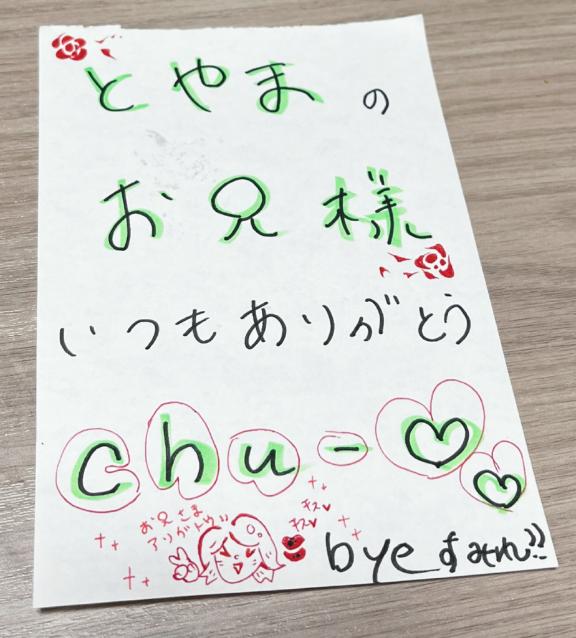 とやまの
お兄様
いつもありがとう
chu-♡♡
お兄さま
アリガトウ
キス♥
キス♥
bye すみれん!!